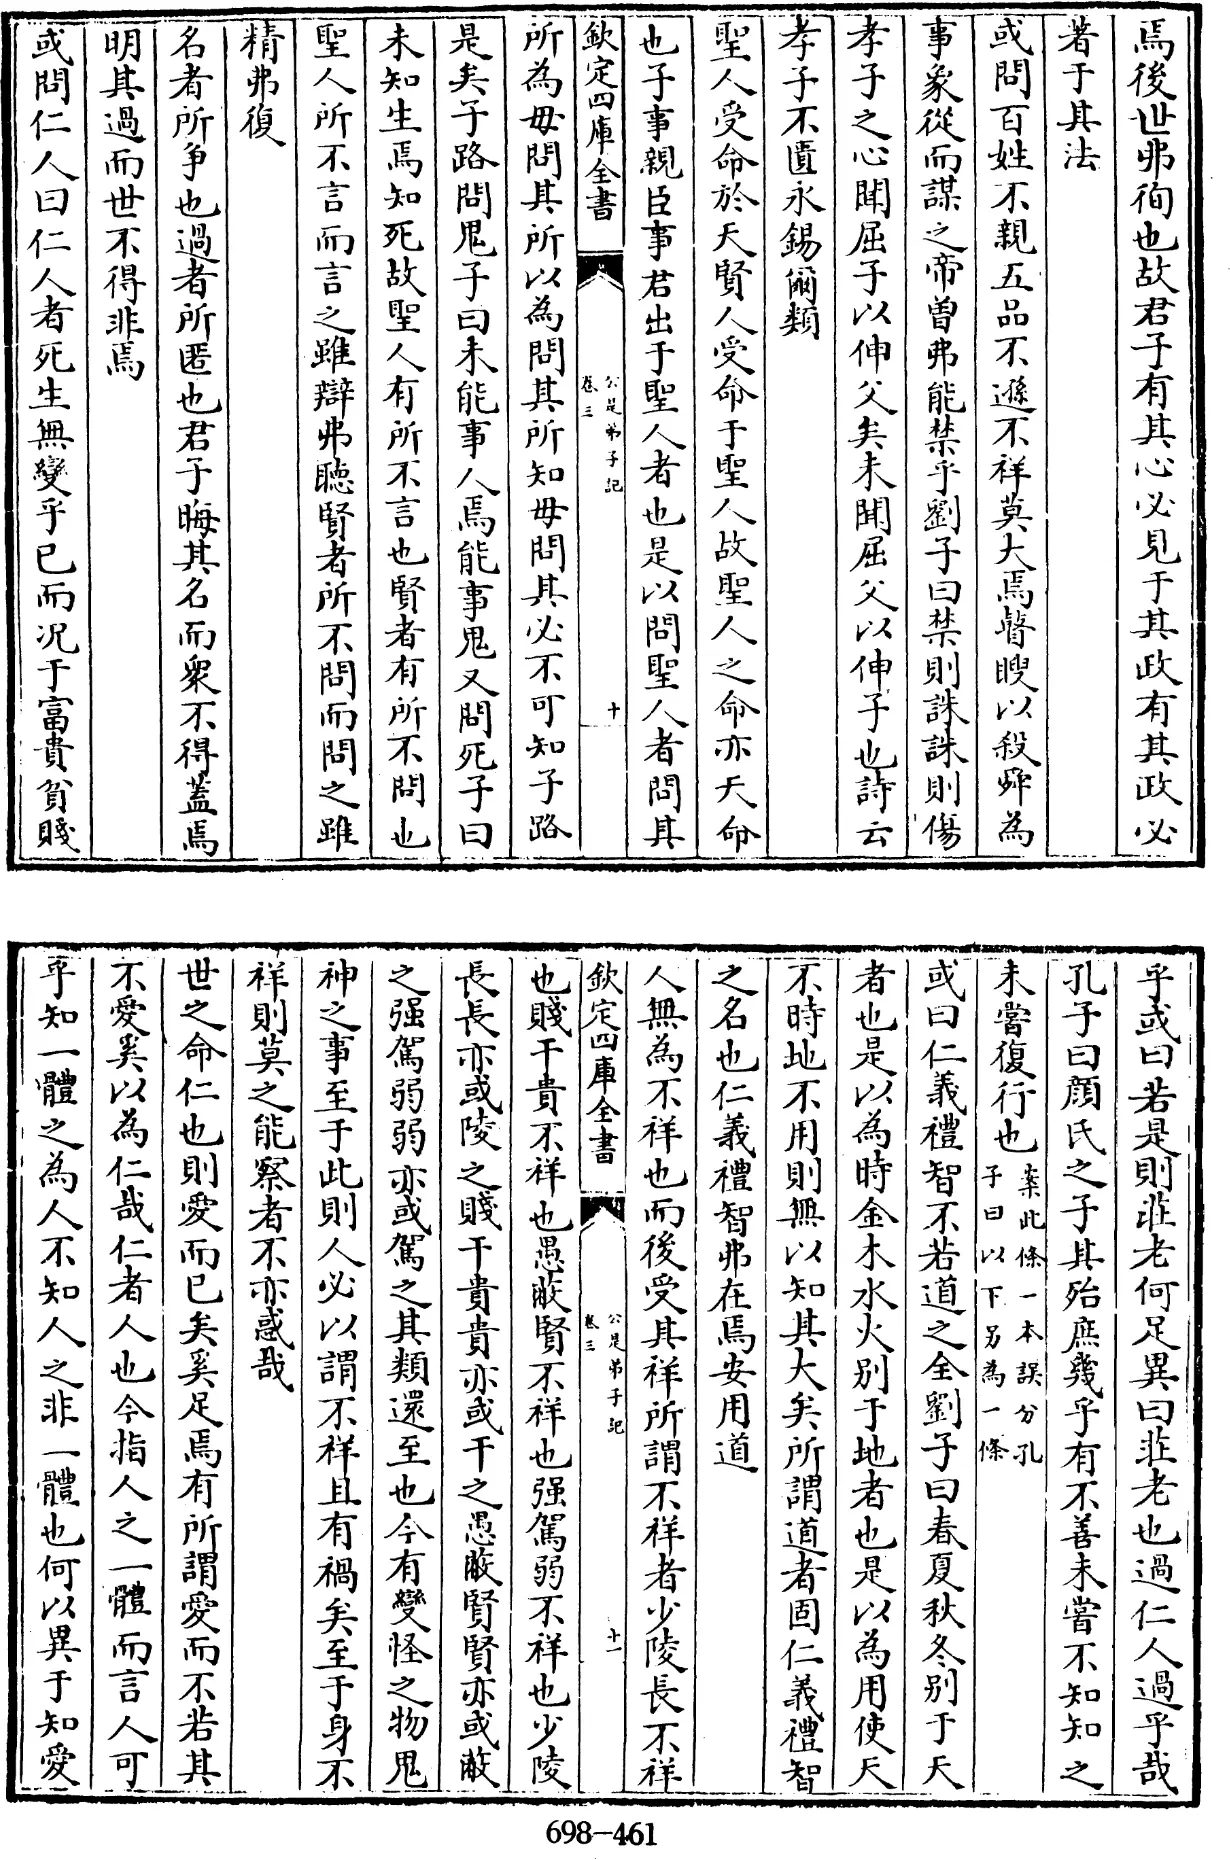 焉後世弗徇也故君子有其心必見于其政有其政必
著于其法
或問百姓不親五品不遜不祥莫大焉瞽瞍以殺舜為
事象從而謀之帝曽弗能禁乎劉子曰禁則誅誅則傷
孝子之心聞屈子以伸父矣未聞屈父以伸子也詩云
孝子不匱永錫爾類
聖人受命於天賢人受命于聖人故聖人之命亦天命
也子事親臣事君出于聖人者也是以問聖人者問其
欽定四庫全書
公是弟子記
卷三
十
所為毋問其所以為問其所知毋問其必不可知子路
是矣子路問鬼子曰未能事人焉能事鬼又問死子曰
未知生焉知死故聖人有所不言也賢者有所不問也
聖人所不言而言之雖辯弗聽賢者所不問而問之雖
精弗復
名者所争也過者所匿也君子晦其名而衆不得蓋焉
明其過而世不得非焉
或問仁人曰仁人者死生無變乎已而况于富貴貧賤
乎或曰若是則莊老何足異曰莊老也過仁人過乎哉
孔子曰顔氏之子其殆庶幾乎有不善未嘗不知知之
未嘗復行也案此條一本誤分孔
子曰以下另為一條
或曰仁義禮智不若道之全劉子曰春夏秋冬别于天
者也是以為時金木水火别于地者也是以為用使天
不時地不用則無以知其大矣所謂道者固仁義禮智
之名也仁義禮智弗在焉安用道
人無為不祥也而後受其祥所謂不祥者少陵長不祥
欽定四庫全書
公是弟子記
卷三
十一
也賤干貴不祥也愚蔽賢不祥也强駕弱不祥也少陵
長長亦或陵之賤干貴貴亦或干之愚蔽賢賢亦或蔽
之强駕弱弱亦或駕之其類還至也今有變怪之物鬼
神之事至于此則人必以謂不祥且有禍矣至于身不
祥則莫之能察者不亦惑哉
世之命仁也則愛而已矣奚足焉有所謂愛而不若其
不愛奚以為仁哉仁者人也今指人之一體而言人可
乎知一體之為人不知人之非一體也何以異于知愛
698-461